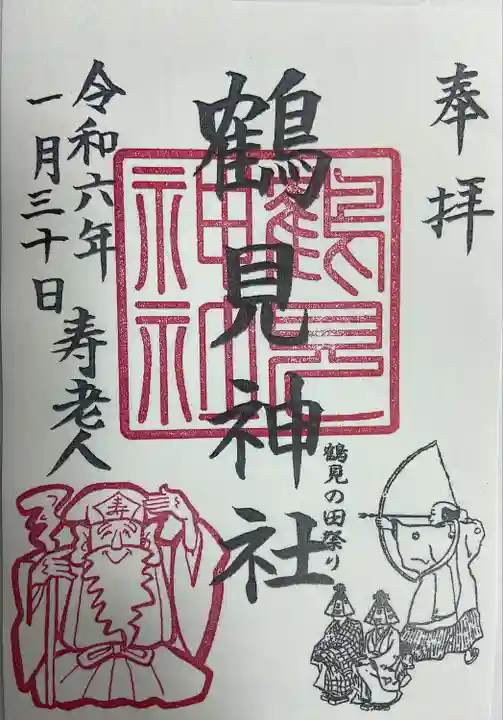 奉拝
鶴見神社
鶴見の田祭り
令和六年
一月三十日
寿老人
寿
鶴見
神社